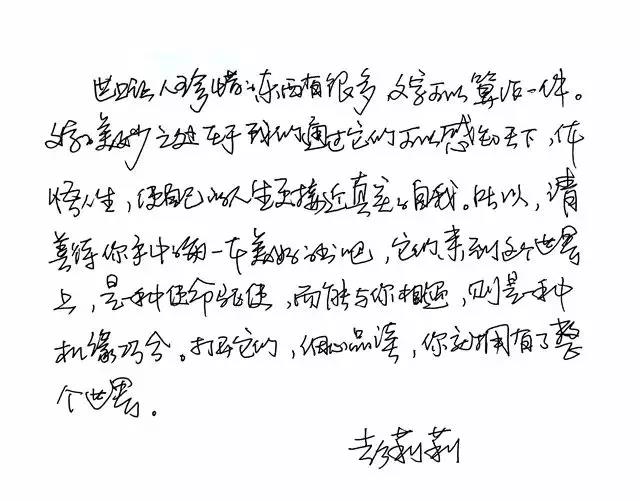 世上让人珍惜的东西有很多，文字可以算作一件。
文字的美妙之处在于我们通过它们可以感知天下，体
悟人生，使自己的人生更接近真实的自我。所以，请
善待你手中的每一本美好的书吧，它们来到这个世界
上，是一种使命驱使，而能与你相遇，则是一种
机缘巧合。打开它们，细心品读，你就拥有了整
个世界。
彭莉莉